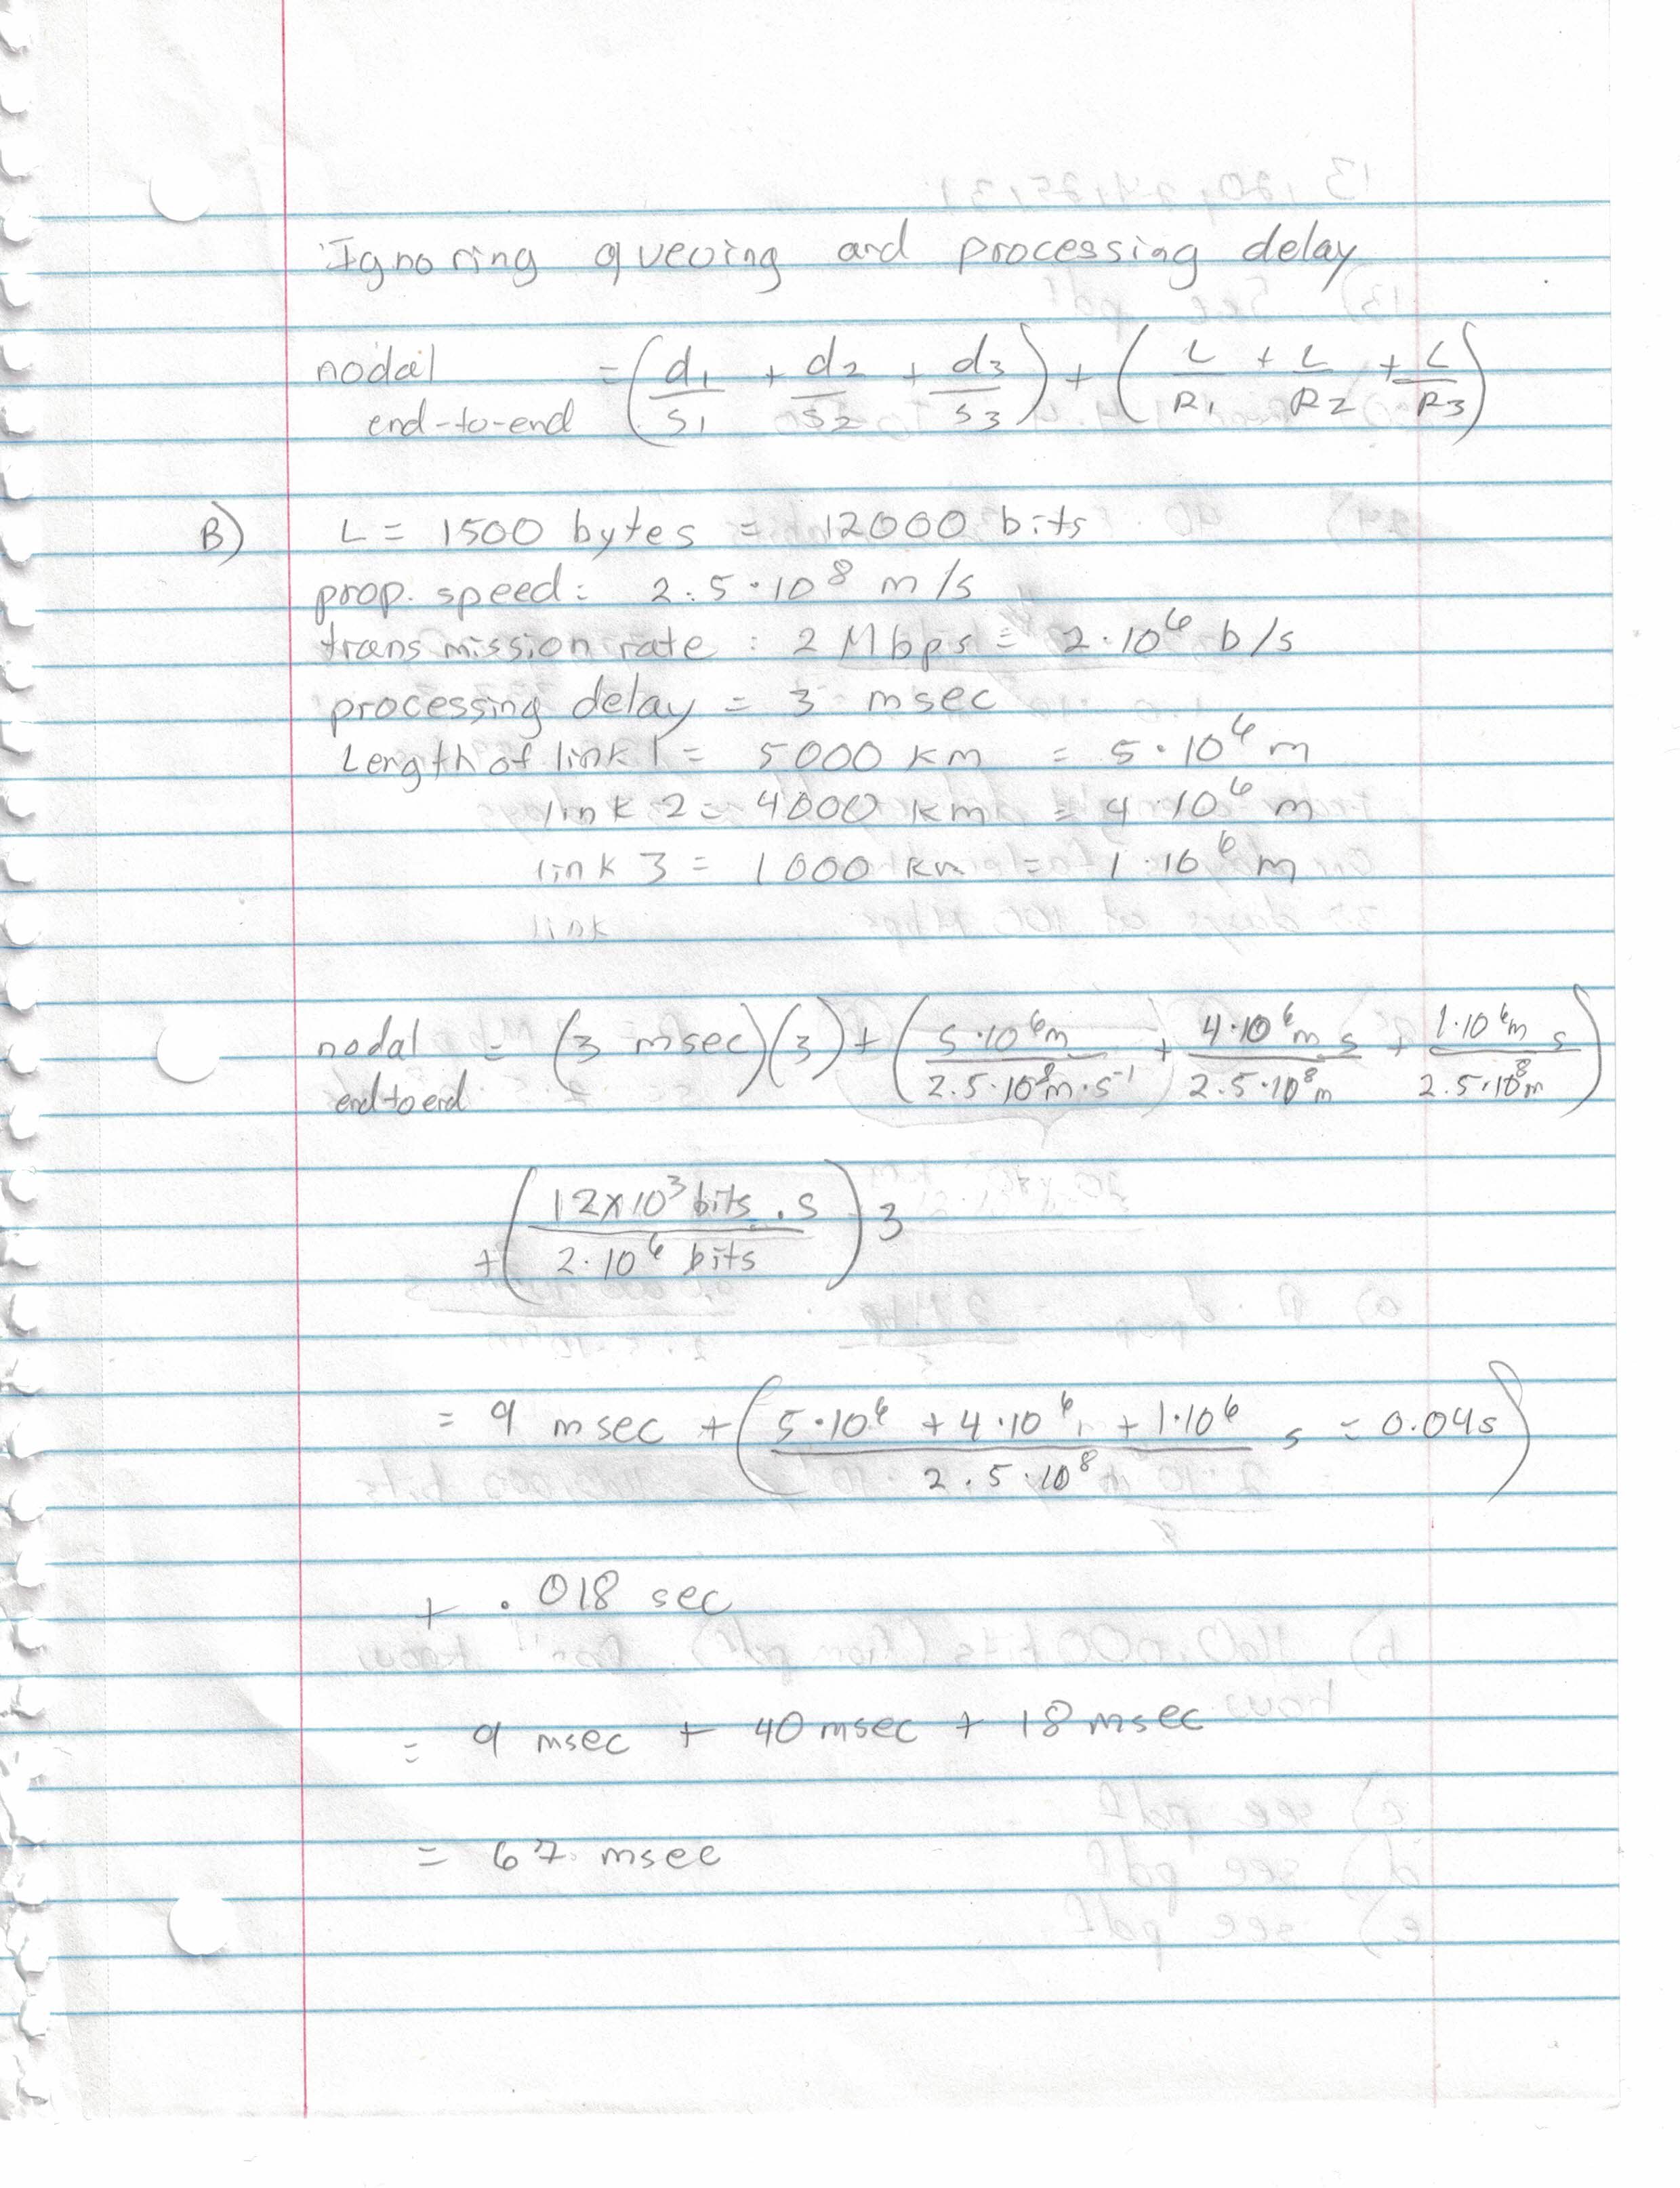 Ignoring queuing and processing delay
nodal end-to-end = (d1/s1 + d2/s2 + d3/s3) + (L/R1 + L/R2 + L/R3)
B) L = 1500 bytes = 12000 bits
prop. speed: 2.5·10^8 m/s
transmission rate : 2 Mbps = 2·10^6 b/s
processing delay = 3 msec
Length of link 1 = 5000 km = 5·10^6 m
link 2 = 4000 km = 4·10^6 m
link 3 = 1000 km = 1·10^6 m
link
nodal end to end = (3 msec)(3) + (5·10^6 m / 2.5·10^8 m·s^-1 + 4·10^6 m s / 2.5·10^8 m + 1·10^6 m s / 2.5·10^8 m)
+ (12×10^3 bits · s / 2·10^6 bits) 3
= 9 msec + (5·10^6 + 4·10^6 + 1·10^6 / 2.5·10^8 s = 0.04s)
+ .018 sec
= 9 msec + 40 msec + 18 msec
= 67 msec